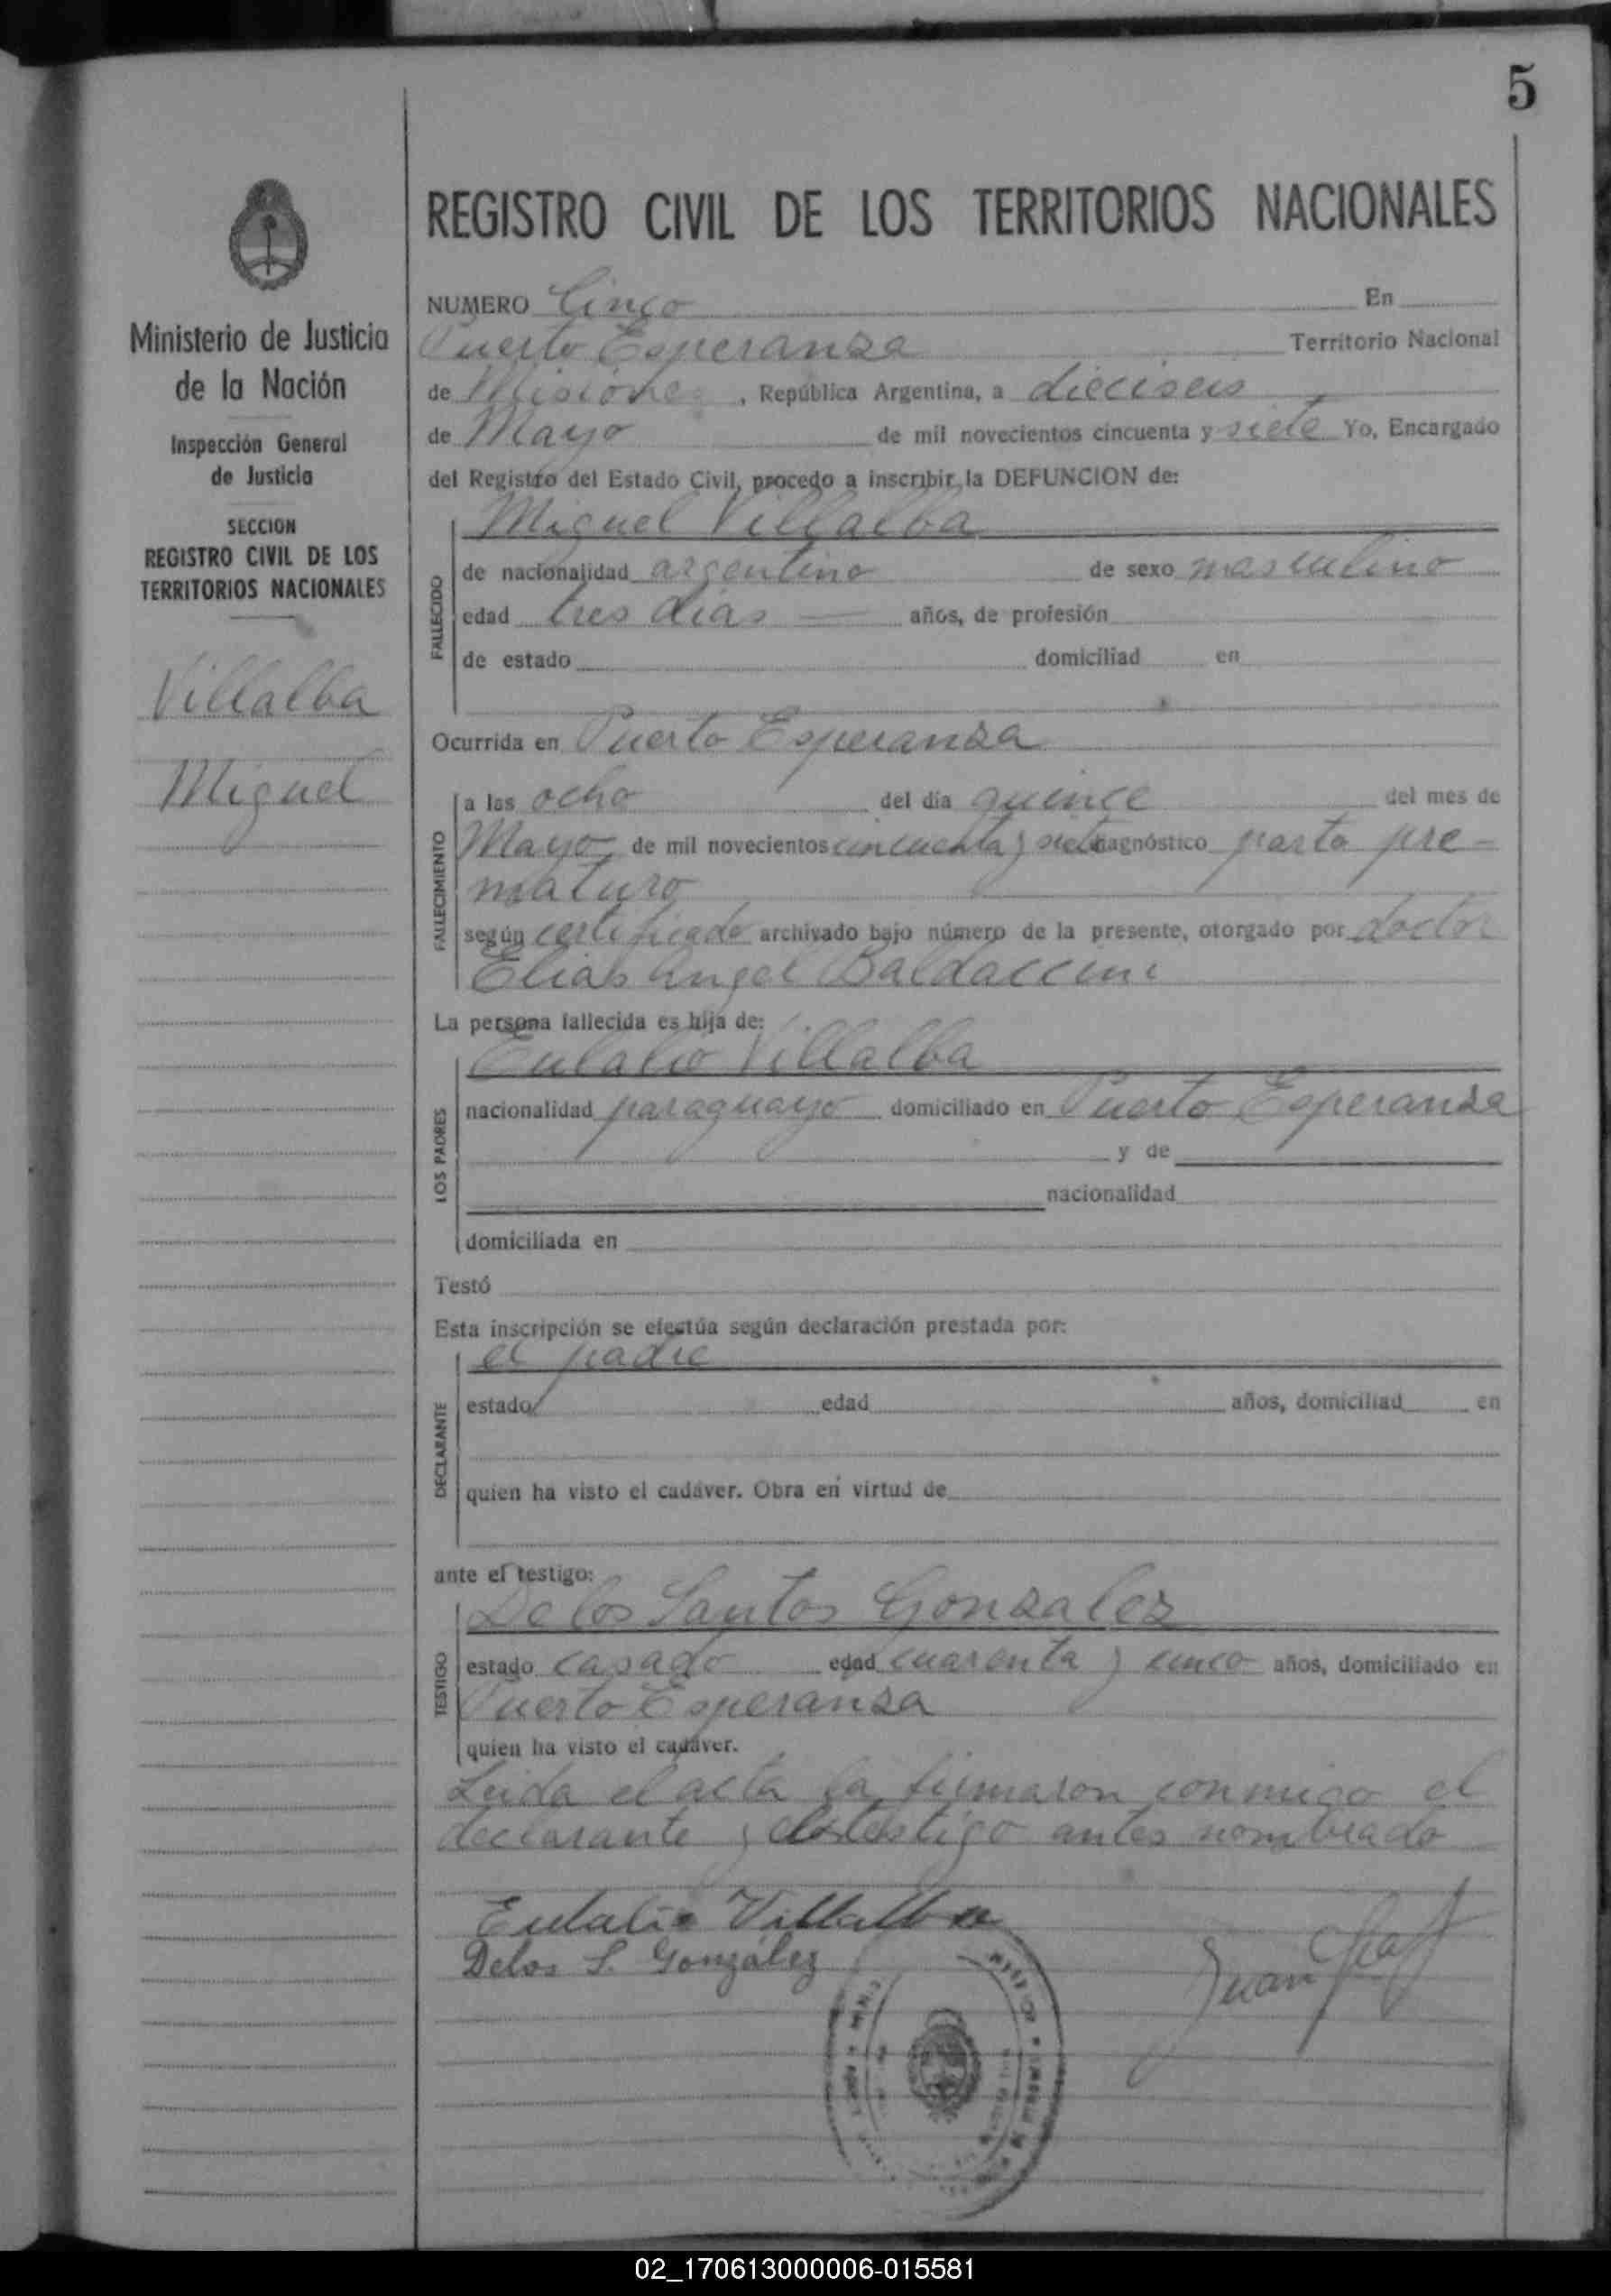 5
REGISTRO CIVIL DE LOS TERRITORIOS NACIONALES
Ministerio de Justicia
de la Nación
Inspección General
de Justicia
SECCION
REGISTRO CIVIL DE LOS
TERRITORIOS NACIONALES
Villalba
Miguel
NUMERO Cinco En
Puerto Esperanza Territorio Nacional
de Misiones, República Argentina, a dieciseis
de Mayo de mil novecientos cincuenta y siete Yo, Encargado
del Registro del Estado Civil, procedo a inscribir la DEFUNCION de:
FALLECIDO
Miguel Villalba
de nacionalidad argentino de sexo masculino
edad tres dias — años, de profesión
de estado domiciliad en
Ocurrida en Puerto Esperanza
FALLECIMIENTO
a las ocho del día quince del mes de
Mayo de mil novecientos cincuenta y siete diagnóstico parto pre-
maturo
según certificado archivado bajo número de la presente, otorgado por doctor
Elias Angel Baldaccini
La persona fallecida es hija de:
LOS PADRES
Eulalio Villalba
nacionalidad paraguayo domiciliado en Puerto Esperanza
y de
nacionalidad
domiciliada en
Testó
Esta inscripción se efectúa según declaración prestada por:
DECLARANTE
el padre
estado edad años, domiciliad en
quien ha visto el cadáver. Obra en virtud de
ante el testigo:
TESTIGO
De los Santos Gonzalez
estado casado edad cuarenta y cinco años, domiciliado en
Puerto Esperanza
quien ha visto el cadáver.
Leida el acta la firmaron conmigo el
declarante y el testigo antes nombrado
Eulalio Villalba
Delos S. González
Juan
02_170613000006-015581